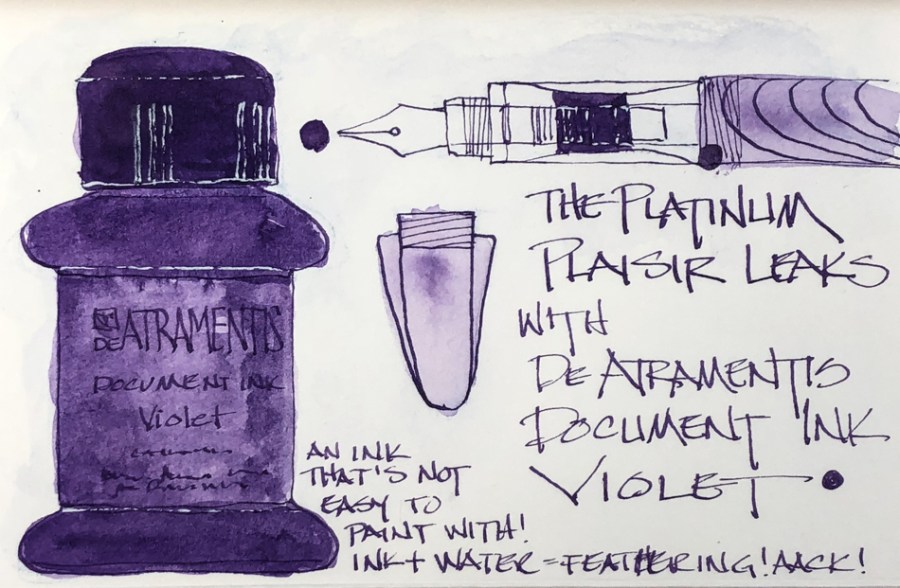 DE ATRAMENTIS
DOCUMENT INK
Violet
THE PLATINUM
PLAISIR LEAKS
WITH
DE ATRAMENTIS
DOCUMENT INK
VIOLET
AN INK
THAT'S NOT
EASY TO
PAINT WITH!
INK + WATER = FEATHERING! AACK!